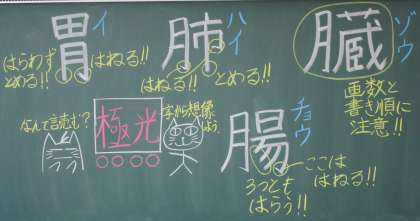 胃 イ
はらわず
とめる!!
はねる!!
肺 ハイ
はねる!!
とめる!!
臓 ゾウ
画数と
書き順に
注意!!
なんて読む?
極光
字から想像
しよう
腸 チョウ
ここは
はねる!!
3つとも
はらう!!